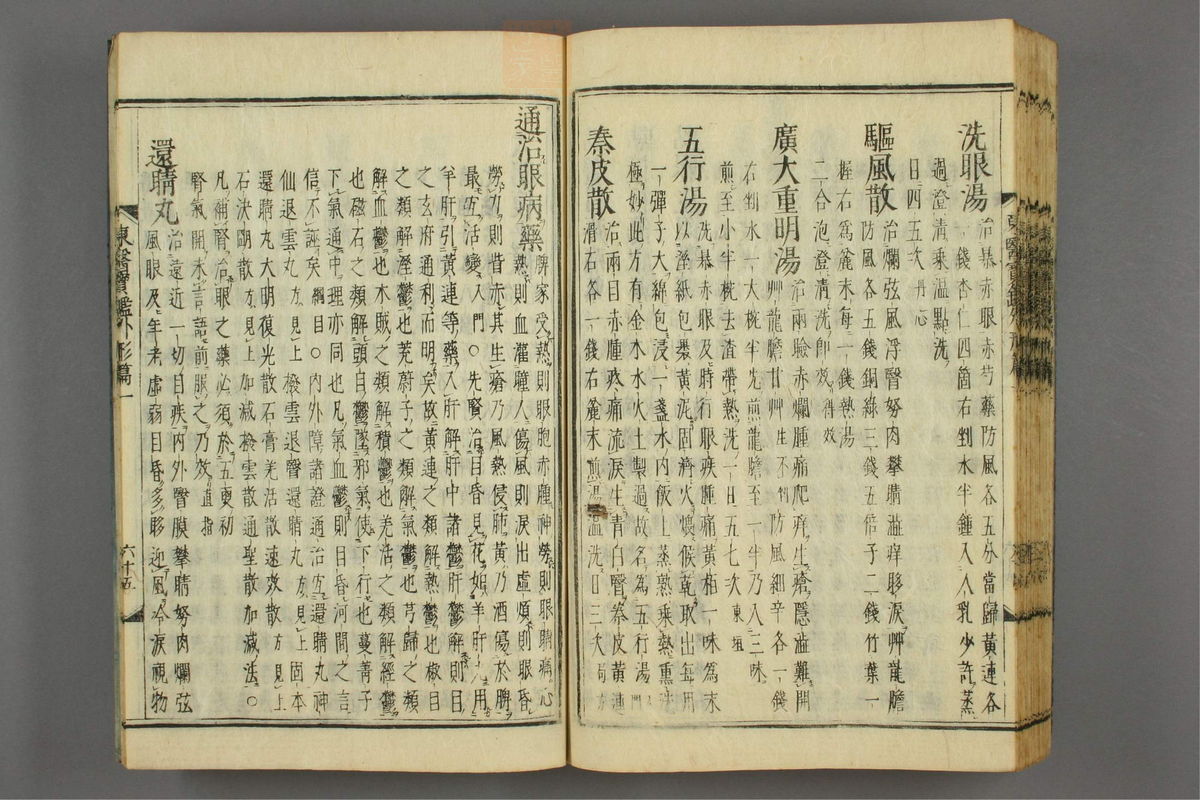 洗眼湯 治暴赤眼赤芍藥防風各五分當歸黃連各
一錢杏仁四箇右剉水半鍾入人乳少許蒸
過澄淸乘温點洗
日四五次 丹心
驅風散 治爛弦風浮瞖努肉攀睛澁痒眵淚艸龍膽
防風各五錢銅綠三錢五倍子二錢竹葉一
握右爲麄末每一錢熱湯
二合泡澄淸洗卽效 得效
廣大重明湯 治兩瞼赤爛腫痛爬痒生瘡隱澁難開
艸龍膽甘艸生不 防風細辛各一錢
右剉水一大椀半先煎龍膽至一半乃入三味
煎至小半椀去渣帶熱洗一日五七次 東垣
五行湯 洗暴赤眼及時行眼疾腫痛黃栢一味爲末
以溼紙包褁黃泥固濟火煨候乾取出每用
一彈子大綿包浸一盞水內飯上蒸熟乘熱熏洗
極妙此方有金木水火土製過故名爲五行湯
秦皮散 治兩目赤腫疼痛流淚生靑白瞖秦皮黃連
滑石各一錢右麄末煎湯温洗日三次 局方
通治眼病藥 脾家受熱則眼胞赤腫神勞則眼睛痛心
熱則血灌瞳人傷風則淚出虛煩則眼昏
勞力則眥赤其生瘡乃風熱侵肺黃乃酒傷於脾
最宜活變 入門○先賢治目昏見花如羊肝丸用
羊肝引黃連等藥入肝解肝中諸鬱肝鬱解則目
之玄府通利而明矣故黃連之類解熱鬱也椒目
之類解溼鬱也茺蔚子之類解氣鬱也芎歸之類
解血鬱也木賊之類解積鬱也羌活之類解經鬱
也磁石之類解頭目鬱墜邪氣使下行也蔓菁子
下氣通中理亦同也凡氣血鬱則目昏河間之言
信不誣矣 綱目○內外障諸證通治宜還睛丸神
仙退雲丸 方見上 撥雲退瞖還睛丸 方見上 固本
還睛丸大明復光散石膏羌活散速效散 方見上
石決明散 方見上 加減撥雲散通聖散加減法○
凡補腎治眼之藥必須於五更初
腎氣開未言語前服之乃效 直指
還睛丸 治遠近一切目疾內外瞖膜攀睛努肉爛弦
風眼及年老虛弱目昏多眵迎風冷淚視物
東醫寶鑑外形篇一
六十五